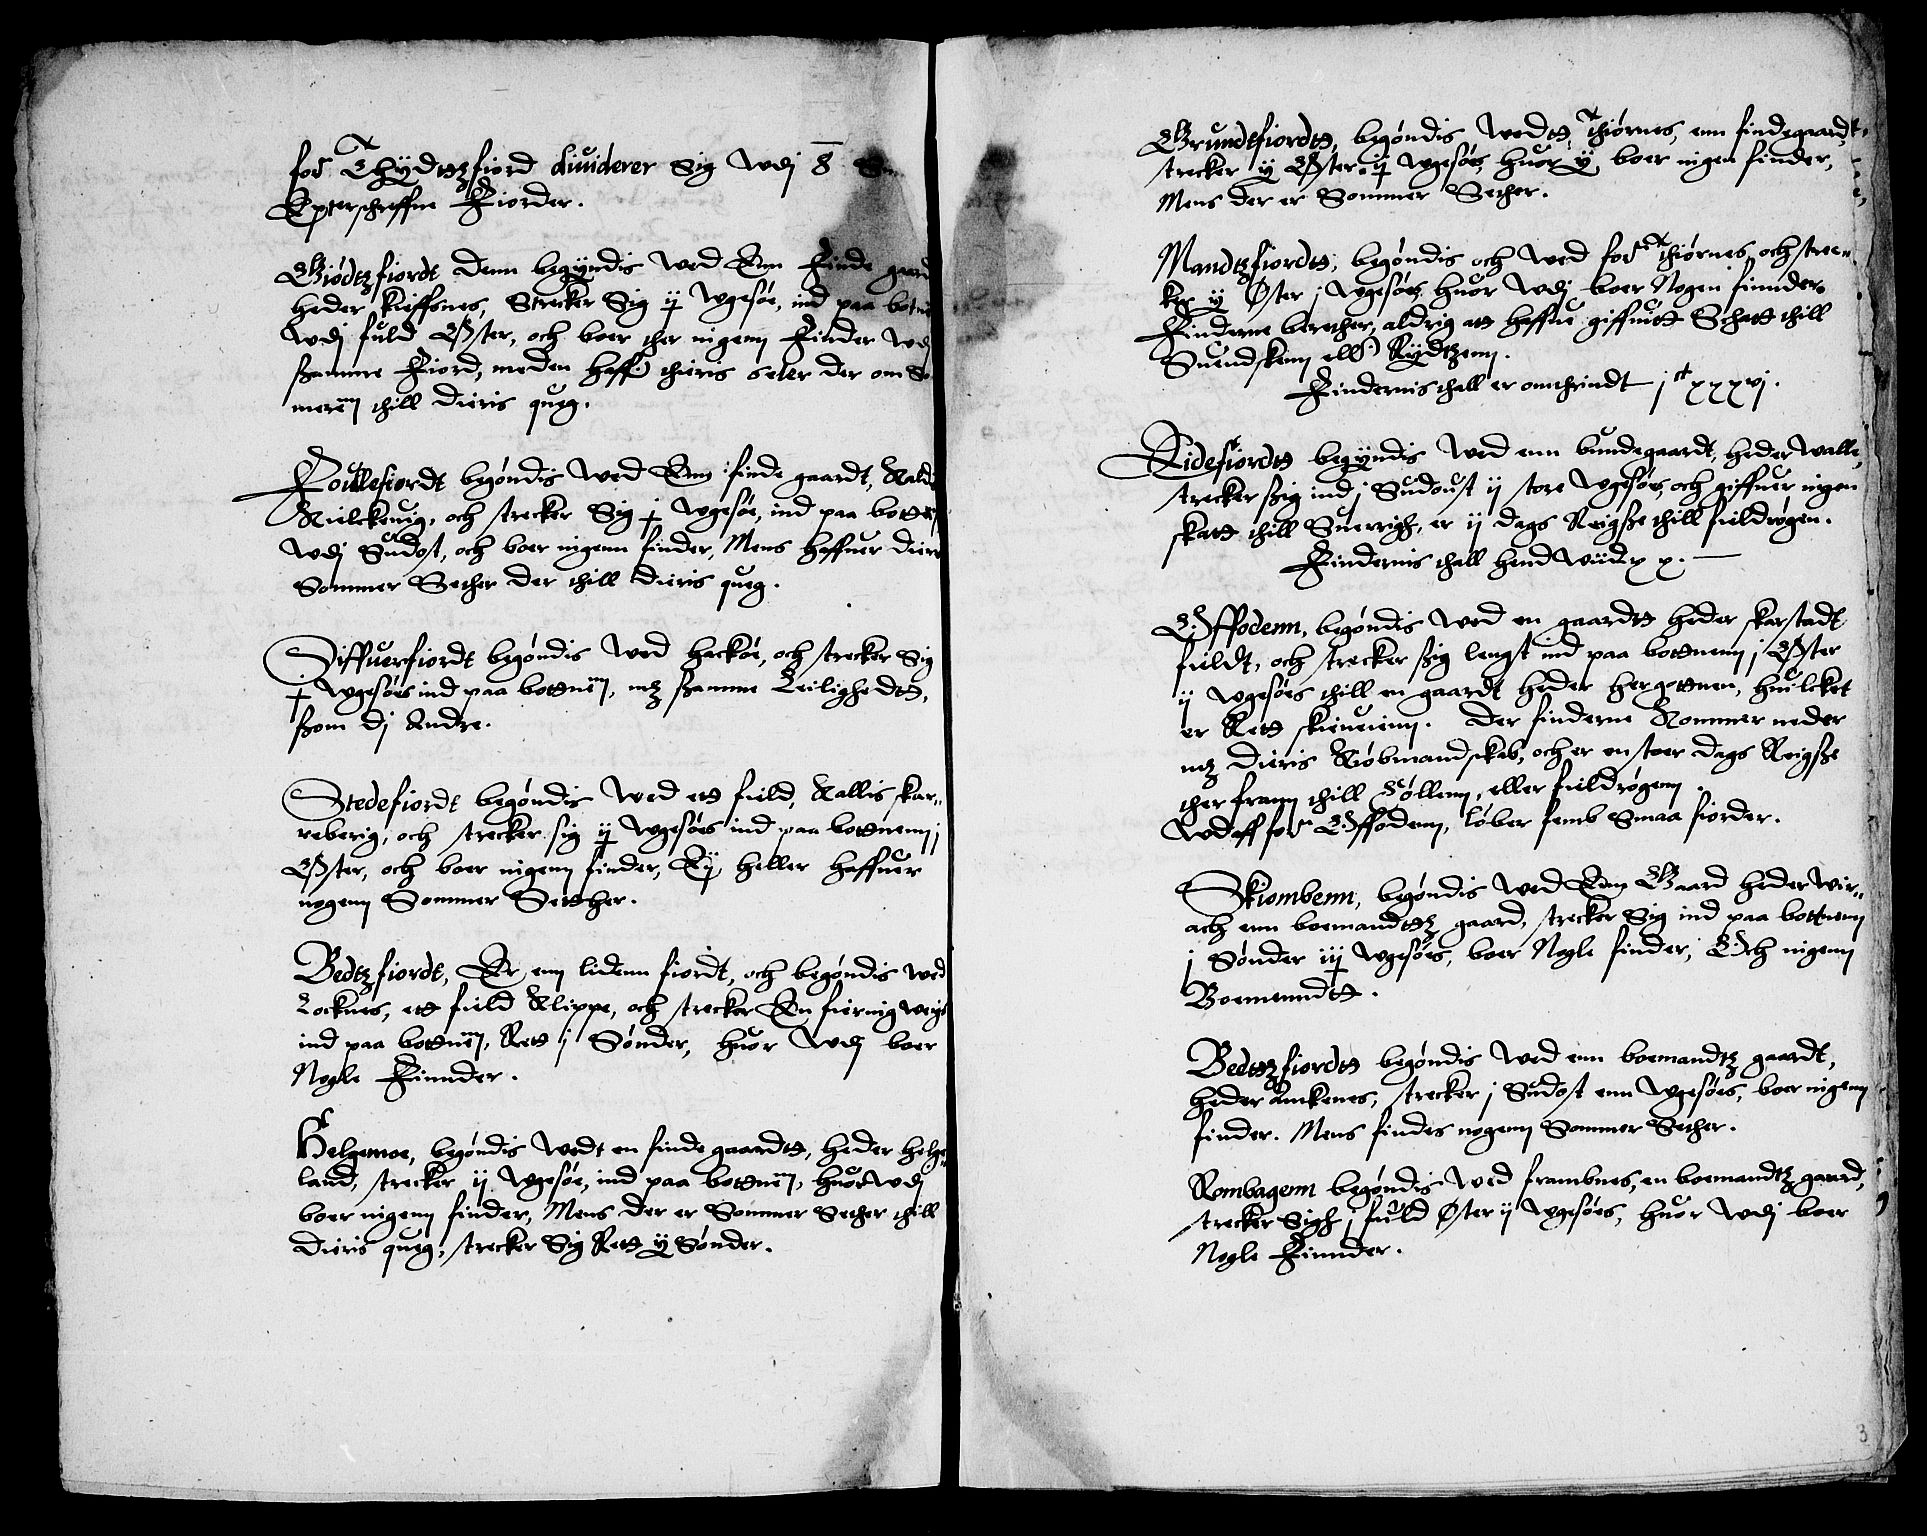 for Thÿdtzfiord diuiderer Sig wdj 8
Epterschreffne Fiorder.
Giødtzfiordt Denn begÿndis wed Enn Finde gaard
heder kieffsnes, Strecker Sig ÿ wgesøe, ind paa botne
wdj fuld Øster, och boer ther ingenn Finder wdj
ßamme Fiord, meden haffr thieris seter der om So
meren thill dieris queg.
Foulefiordt begøndis wed Enn finde gaardt, Kaldis
Mielckeuig, och strecker Sig j wgesøe, ind paa botten
wdj Sudost, och boer ingenn finder, Mens haffuer dieris
Sommer Secher der thill dieris queg.
Siffuerfiordt begøndis wed hackøe, och strecker Sig
j wgesøes ind paa bottnen, mz ßamme Leilighedtt,
ßom dj Andre.
Stedefiordt begøndis wed ett field, Kallis skar-
reberig, och strecker sig ÿ wgesøes ind paa bottnenn j
Øster, och boer ingenn finder, Eÿ heller haffuer
nogenn Sommer Setther.
Bedtzfiordt, Er enn lidenn fiordt, och begøndis wed
Locknes, ett field Klippe, och strecker En fiering weigs
ind paa bottnen, Rett j Sønder, huor wdj boer
Nogle Finnder.
Helgemoe, begøndis wedt en finde gaardtt, heder helge-
land, strecker ÿ wgesøe, ind paa bottnen, huor wdj
boer ingenn finder, Mens der er Sommer Secher thill
dieris queg, strecker Sig Rett ÿ Sønder.
Grundtfiordtt, begøndis wedtt Thiørnes, enn findegaardt,
strecker ÿ Øster ÿ wgesøes, huor ÿ boer ingen finder,
Mens der er Sommer Secher.
Mandtzfiordtt, begøndis och wed for Thiørnes, och strec-
ker ÿ Øster j wgesøes, huor wdj boer Nogen finnder.
Finderne beretther, aldrig att haffue giffuett Schatt thill
Suendskenn ellr Rÿdtzenn.
Findernis thall er omthrindt j ct xxxvj.
Lidefiordtt begÿndis wed enn bundegaardt, heder walle,
strecker ßig ind j Sudoust ÿ store wgesøes, och giffuer ingen
skatt thill Suerrigh, er ÿ dags Reigße thill fieldrøgen.
Findernis thall hend widt x x.
Offodenn, begøndis wed en gaardtt heder skarstadt
fieldt, och strecker ßig lengst ind paa bottnenn j Øster
ÿ wgesøes thill en gaardt heder hergottnen, huilcket
er Rett skieueienn. Der finderne Kommer neder
mz dieris Kiøbmandskab, och er en stoer dags Reigße
ther frann thill Køllenn, eller fieldrøgenn.
wdaff for Offodenn, løber femb Smaa fiorder.
Skiombenn, begøndis wed Enn Gaard heder wir-
ach enn boemandttz gaard, strecker Sig ind paa bottnenn
j Sønder iij wgesøes, boer Nogle finder, Och ingenn
Boemenndtt.
Bedttzfiordtt begøndis wed enn boemandtz gaardt,
heder Anckenes, strecker j Sudost enn wgesøes, boer ingenn
finder. Mens findes nogenn Sommer Secher.
Rombagenn begøndis wed frambnes, en boemandtz gaard,
strecker Sigh j fuld Øster ÿ wgesøes, huor wdj boer
Nogle Finnder.
3